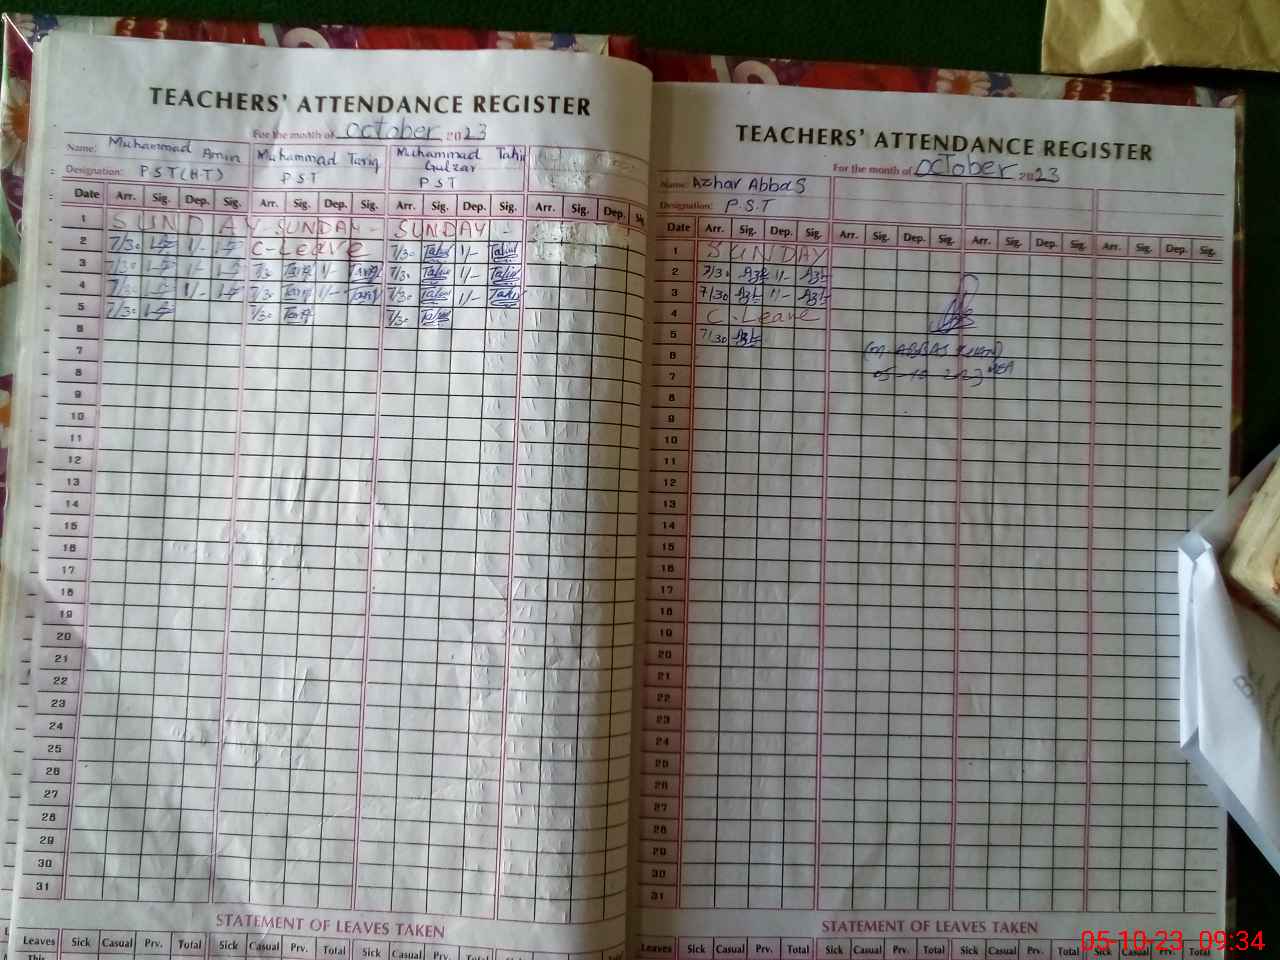 TEACHERS' ATTENDANCE REGISTER
For the month of October 2023
Name: Muhammad Amin Muhammad Tariq Muhammad Tahir Gulzar
Designation: PST(HT) PST PST
Date Arr. Sig. Dep. Sig. Arr. Sig. Dep. Sig. Arr. Sig. Dep. Sig. Arr. Sig. Dep. Sig.
1 SUNDAY SUNDAY SUNDAY
2 7/30 1/- C-Leave 7/30 Tahir 1/- Tahir
3 7/30 1/- 7/30 Tariq 1/- Tariq 7/30 Tahir 1/- Tahir
4 7/30 1/- 7/30 Tariq 1/- Tariq 7/30 Tahir 1/- Tahir
5 7/30 7/30 Tariq 7/30 Tahir
6
7
8
9
10
11
12
13
14
15
16
17
18
19
20
21
22
23
24
25
26
27
28
29
30
31
STATEMENT OF LEAVES TAKEN
Leaves Sick Casual Prv. Total Sick Casual Prv. Total Sick Casual Prv. Total Sick Casual Prv. Total
This
TEACHERS' ATTENDANCE REGISTER
For the month of October 2023
Name: Azhar Abbas
Designation: P.S.T
Date Arr. Sig. Dep. Sig. Arr. Sig. Dep. Sig. Arr. Sig. Dep. Sig. Arr. Sig. Dep. Sig.
1 SUNDAY
2 7/30 1/-
3 7/30 1/-
4 C-Leave
5 7/30
6 (M ABBAS KHAN)
7 05-10-2023 MEA
8
9
10
11
12
13
14
15
16
17
18
19
20
21
22
23
24
25
26
27
28
29
30
31
STATEMENT OF LEAVES TAKEN
Leaves Sick Casual Prv. Total Sick Casual Prv. Total Sick Casual Prv. Total Sick Casual Prv. Total
05-10-23 09:34